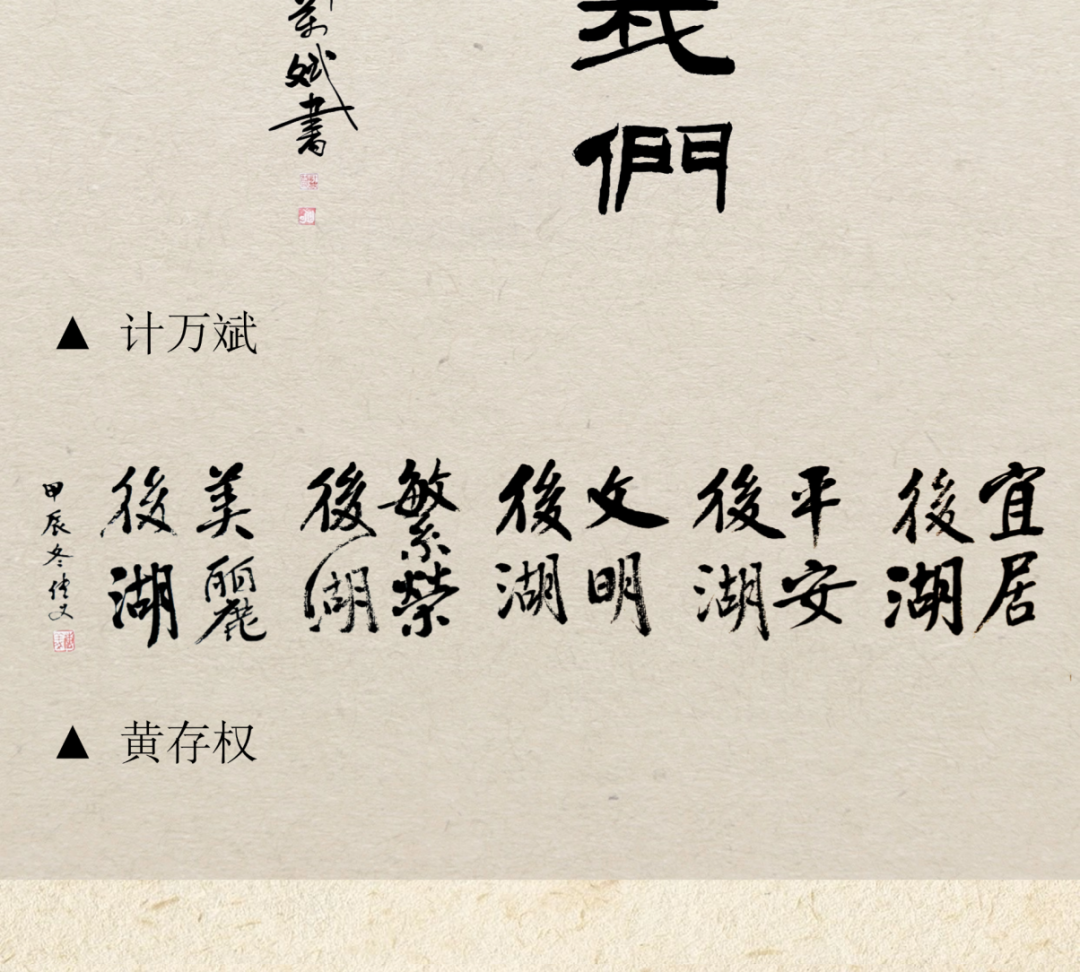 萬斌書
我們
▲ 计万斌
宜居後湖
平安後湖
文明後湖
繁榮後湖
美麗後湖
甲辰冬
▲ 黄存权